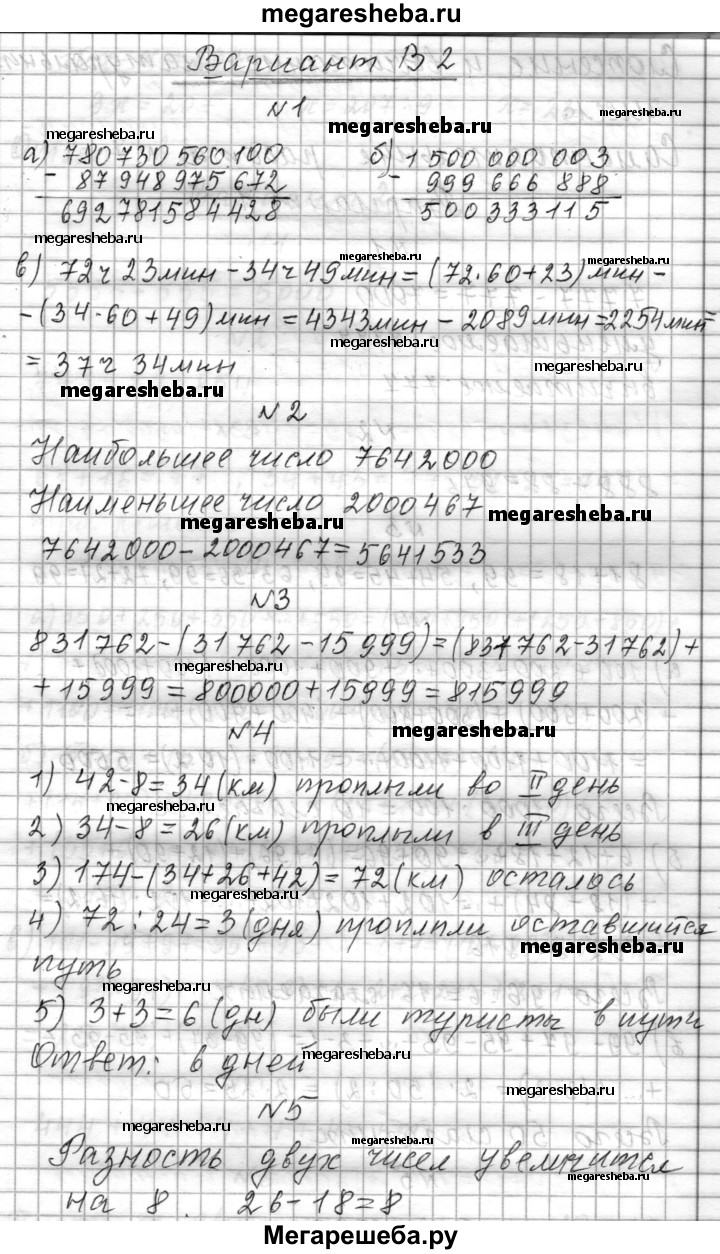 megaresheba.ru
Вариант В2
№1
megaresheba.ru
megaresheba.ru
megaresheba.ru
а) 780 730 560 100
- 87 948 975 672
692 781 584 428
б) 1 500 000 003
- 999 666 888
500 333 115
megaresheba.ru
megaresheba.ru
megaresheba.ru
в) 72ч 23мин - 34ч 49мин = (72·60+23)мин -
- (34·60+49)мин = 4343мин - 2089мин = 2254мин =
megaresheba.ru
= 37ч 34мин
megaresheba.ru
megaresheba.ru
№2
Наибольшее число 7642000
Наименьшее число 2000467
megaresheba.ru
megaresheba.ru
7642000 - 2000467 = 5641533
№3
831762 - (31762 - 15999) = (831762 - 31762) +
megaresheba.ru
+ 15999 = 800000 + 15999 = 815999
№4
megaresheba.ru
1) 42-8=34 (км) проплыли во II день
megaresheba.ru
2) 34-8=26 (км) проплыли в III день
3) 174-(34+26+42)=72 (км) осталось
megaresheba.ru
4) 72:24=3 (дня) проплпли оставшийся
megaresheba.ru
путь
megaresheba.ru
5) 3+3=6 (дн) были туристы в пути
Ответ: 6 дней
megaresheba.ru
megaresheba.ru
№5
megaresheba.ru
megaresheba.ru
Разность двух чисел увеличится
megaresheba.ru
на 8. 26-18=8
Мегарешеба.ру